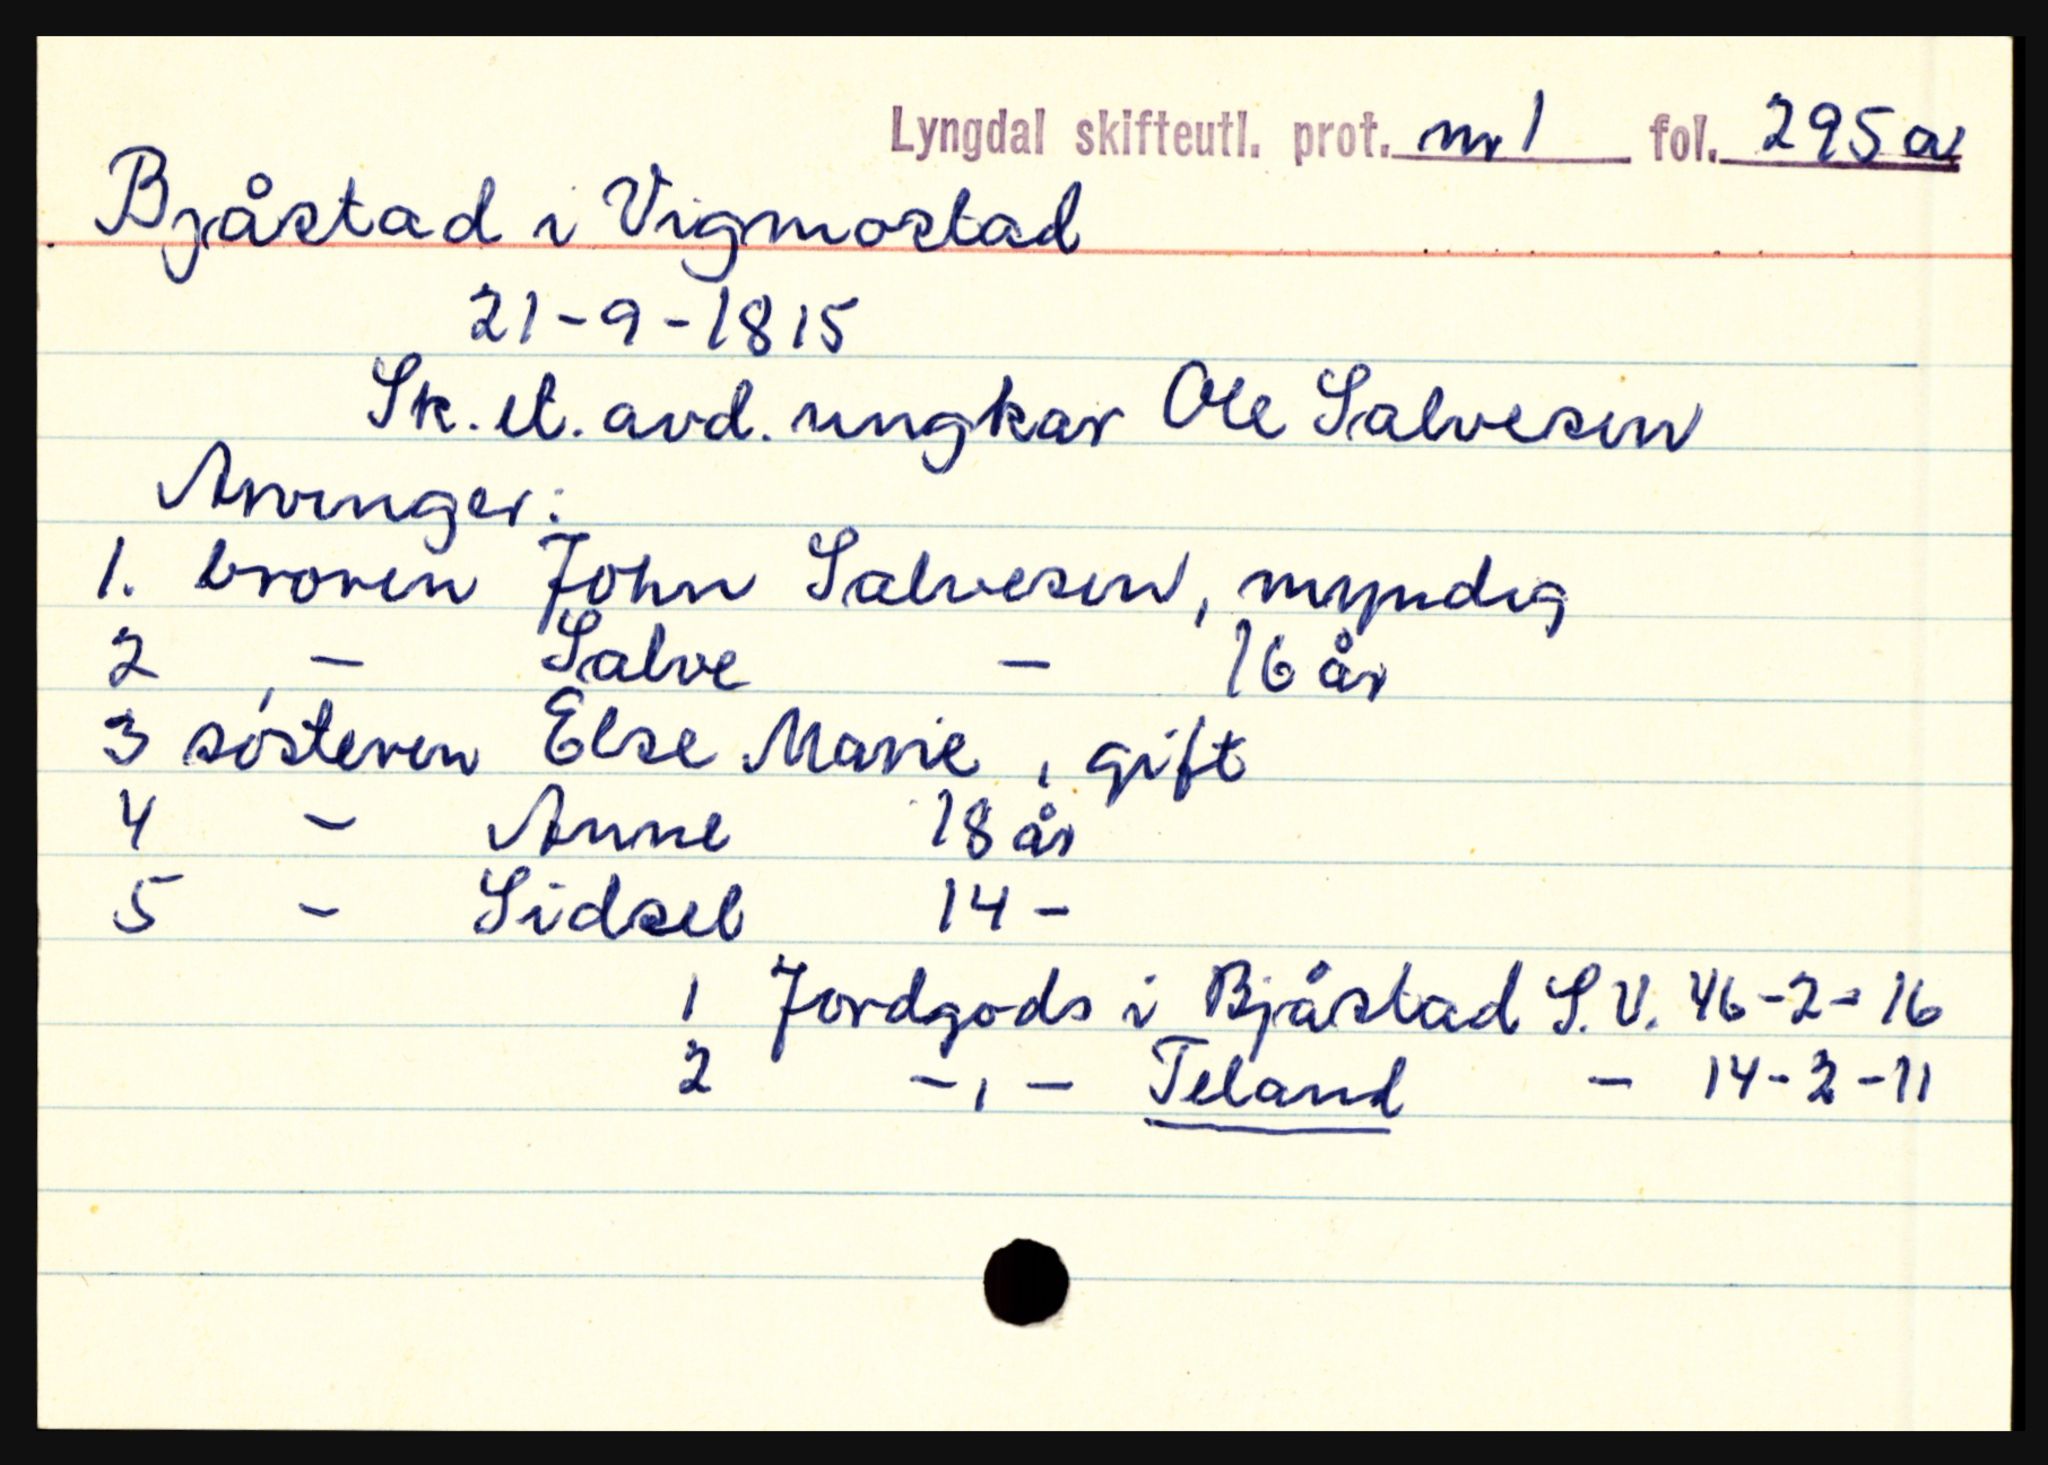 Lyngdal skifteutl. prot. nr 1 fol. 295a
Bjåstad i Vigmostad
21-9-1815
Sk. et. avd. ungkar Ole Salvesen
Arvinger:
1. broren John Salvesen, myndig
2 - Salve - 16 år
3 søsteren Else Marie, gift
4 - Anne 18 år
5 - Sidsel 14 -
1 Jordgods i Bjåstad S.V. 46-2-16
2 -,- Teland - 14-2-11